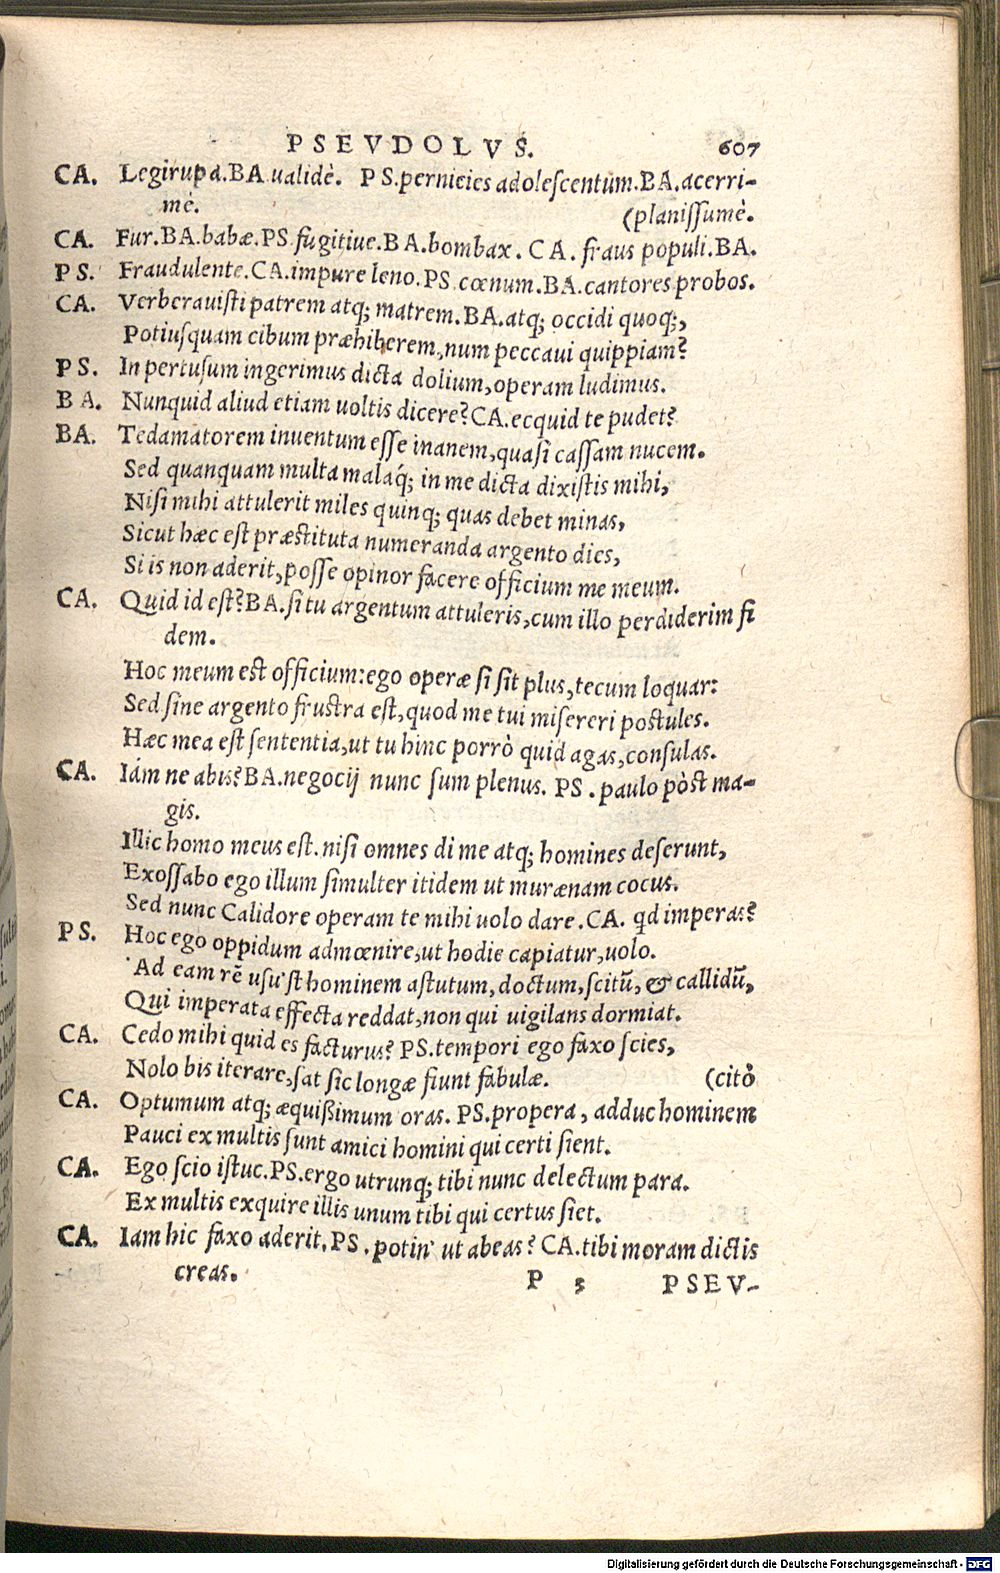 PSEVDOLVS. 607
CA. Legirupa.BA ualidè. PS.pernicies adolescentum.BA.acerri-
mè. (planissumè.
CA. Fur.BA.babæ.PS.fugitiue.BA.bombax. CA. fraus populi.BA.
PS. Fraudulente.CA.impure leno.PS cœnum.BA.cantores probos.
CA. Verberauisti patrem atq; matrem.BA.atq; occidi quoq;,
Potiusquam cibum præhiberem,num peccaui quippiam?
PS. In pertusum ingerimus dicta dolium,operam ludimus.
BA. Nunquid aliud etiam uoltis dicere?CA.ecquid te pudet?
BA. Tedamatorem inuentum esse inanem,quasi cassam nucem.
Sed quanquam multa malaq́; in me dicta dixistis mihi,
Nisi mihi attulerit miles quinq; quas debet minas,
Sicut hæc est præstituta numeranda argento dies,
Si is non aderit,posse opinor facere officium me meum.
CA. Quid id est?BA.si tu argentum attuleris,cum illo perdiderim fi
dem.
Hoc meum est officium:ego operæ si sit plus,tecum loquar:
Sed sine argento frustra est,quod me tui misereri postules.
Hæc mea est sententia,ut tu hinc porrò quid agas,consulas.
CA. Iám ne abis?BA.negocij nunc sum plenus. PS.paulo pòst ma-
gis.
Illic homo meus est.nisi omnes di me atq; homines deserunt,
Exossabo ego illum simulter itidem ut murænam cocus.
Sed nunc Calidore operam te mihi uolo dare.CA. qd imperas?
PS. Hoc ego oppidum admœnire,ut hodie capiatur,uolo.
Ad eam rẽ usu'st hominem astutum,doctum,scitũ,& callidũ,
Qui imperata effecta reddat,non qui uigilans dormiat.
CA. Cedo mihi quid es facturus? PS.tempori ego faxo scies,
Nolo bis iterare,sat sic longæ fiunt fabulæ. (citò
CA. Optumum atq; æquißimum oras. PS.propera, adduc hominem
Pauci ex multis sunt amici homini qui certi sient.
CA. Ego scio istuc.PS.ergo utrunq; tibi nunc delectum para.
Ex multis exquire illis unum tibi qui certus siet.
CA. Iam hic faxo aderit.PS.potin' ut abeas? CA.tibi moram dictis
creas. P 5 PSEV-
Digitalisierung gefördert durch die Deutsche Forschungsgemeinschaft - DFG